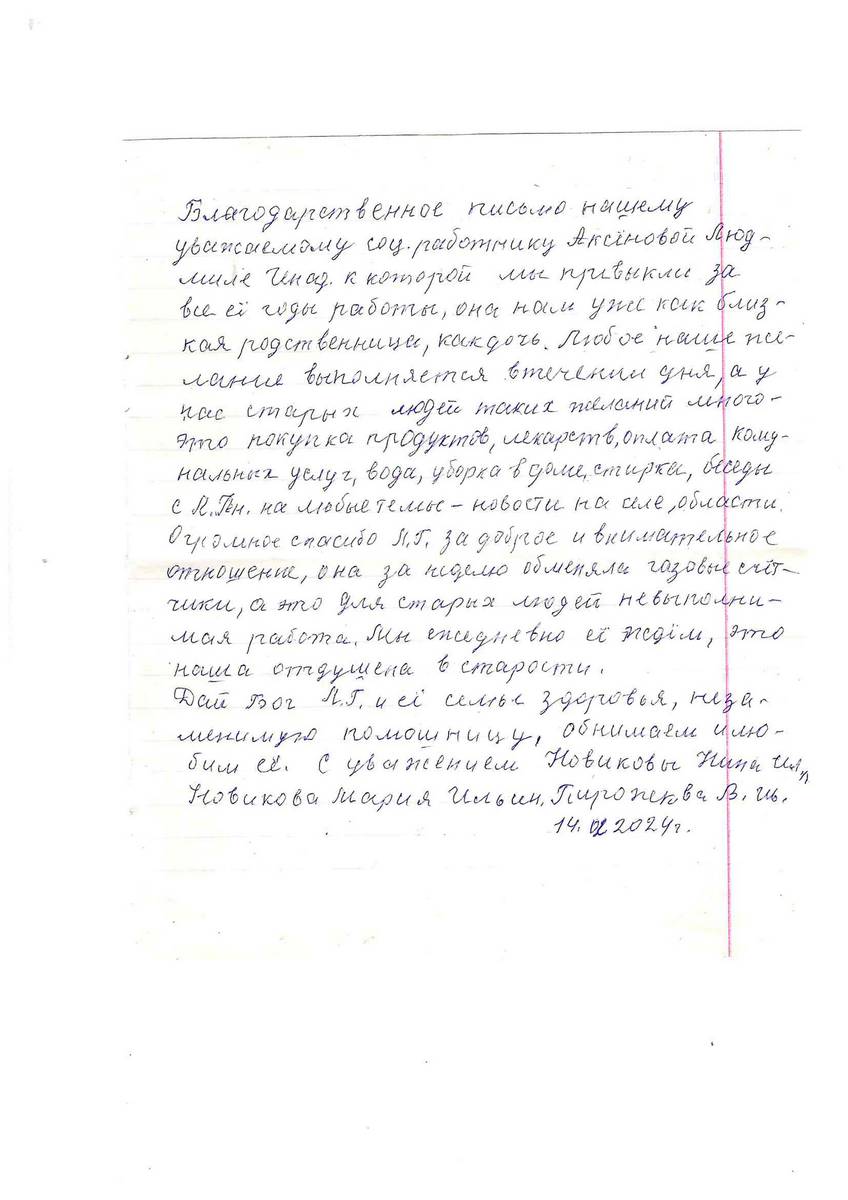 Благодарственное письмо нашему
уважаемому соц. работнику Аксёновой Люд-
миле к которой мы привыкли за
все её годы работы, она нам уже как близ-
кая родственница, как дочь. Любое наше же-
лание выполняется втечении дня, а у
нас старых людей таких желаний много-
это покупка продуктов, лекарств, оплата кому-
нальных услуг, вода, уборка в доме, стирка, беседы
с Л. Ген. на любые темы - новости на селе, области.
Огромное спасибо Л.Г. за доброе и внимательное
отношение, она за неделю обменяла газовые счёт-
чики, а это для старых людей невыполни-
мая работа. Мы ежедневно её ждём, это
наша отдушена в старости.
Дай Бог Л.Г. и её семье здоровья, неза-
менимую помощницу, обнимаем и лю-
бим её. С уважением Новиковы Нина Ил.
Новикова Мария Ильин. В. Ил.
14. 2024г.